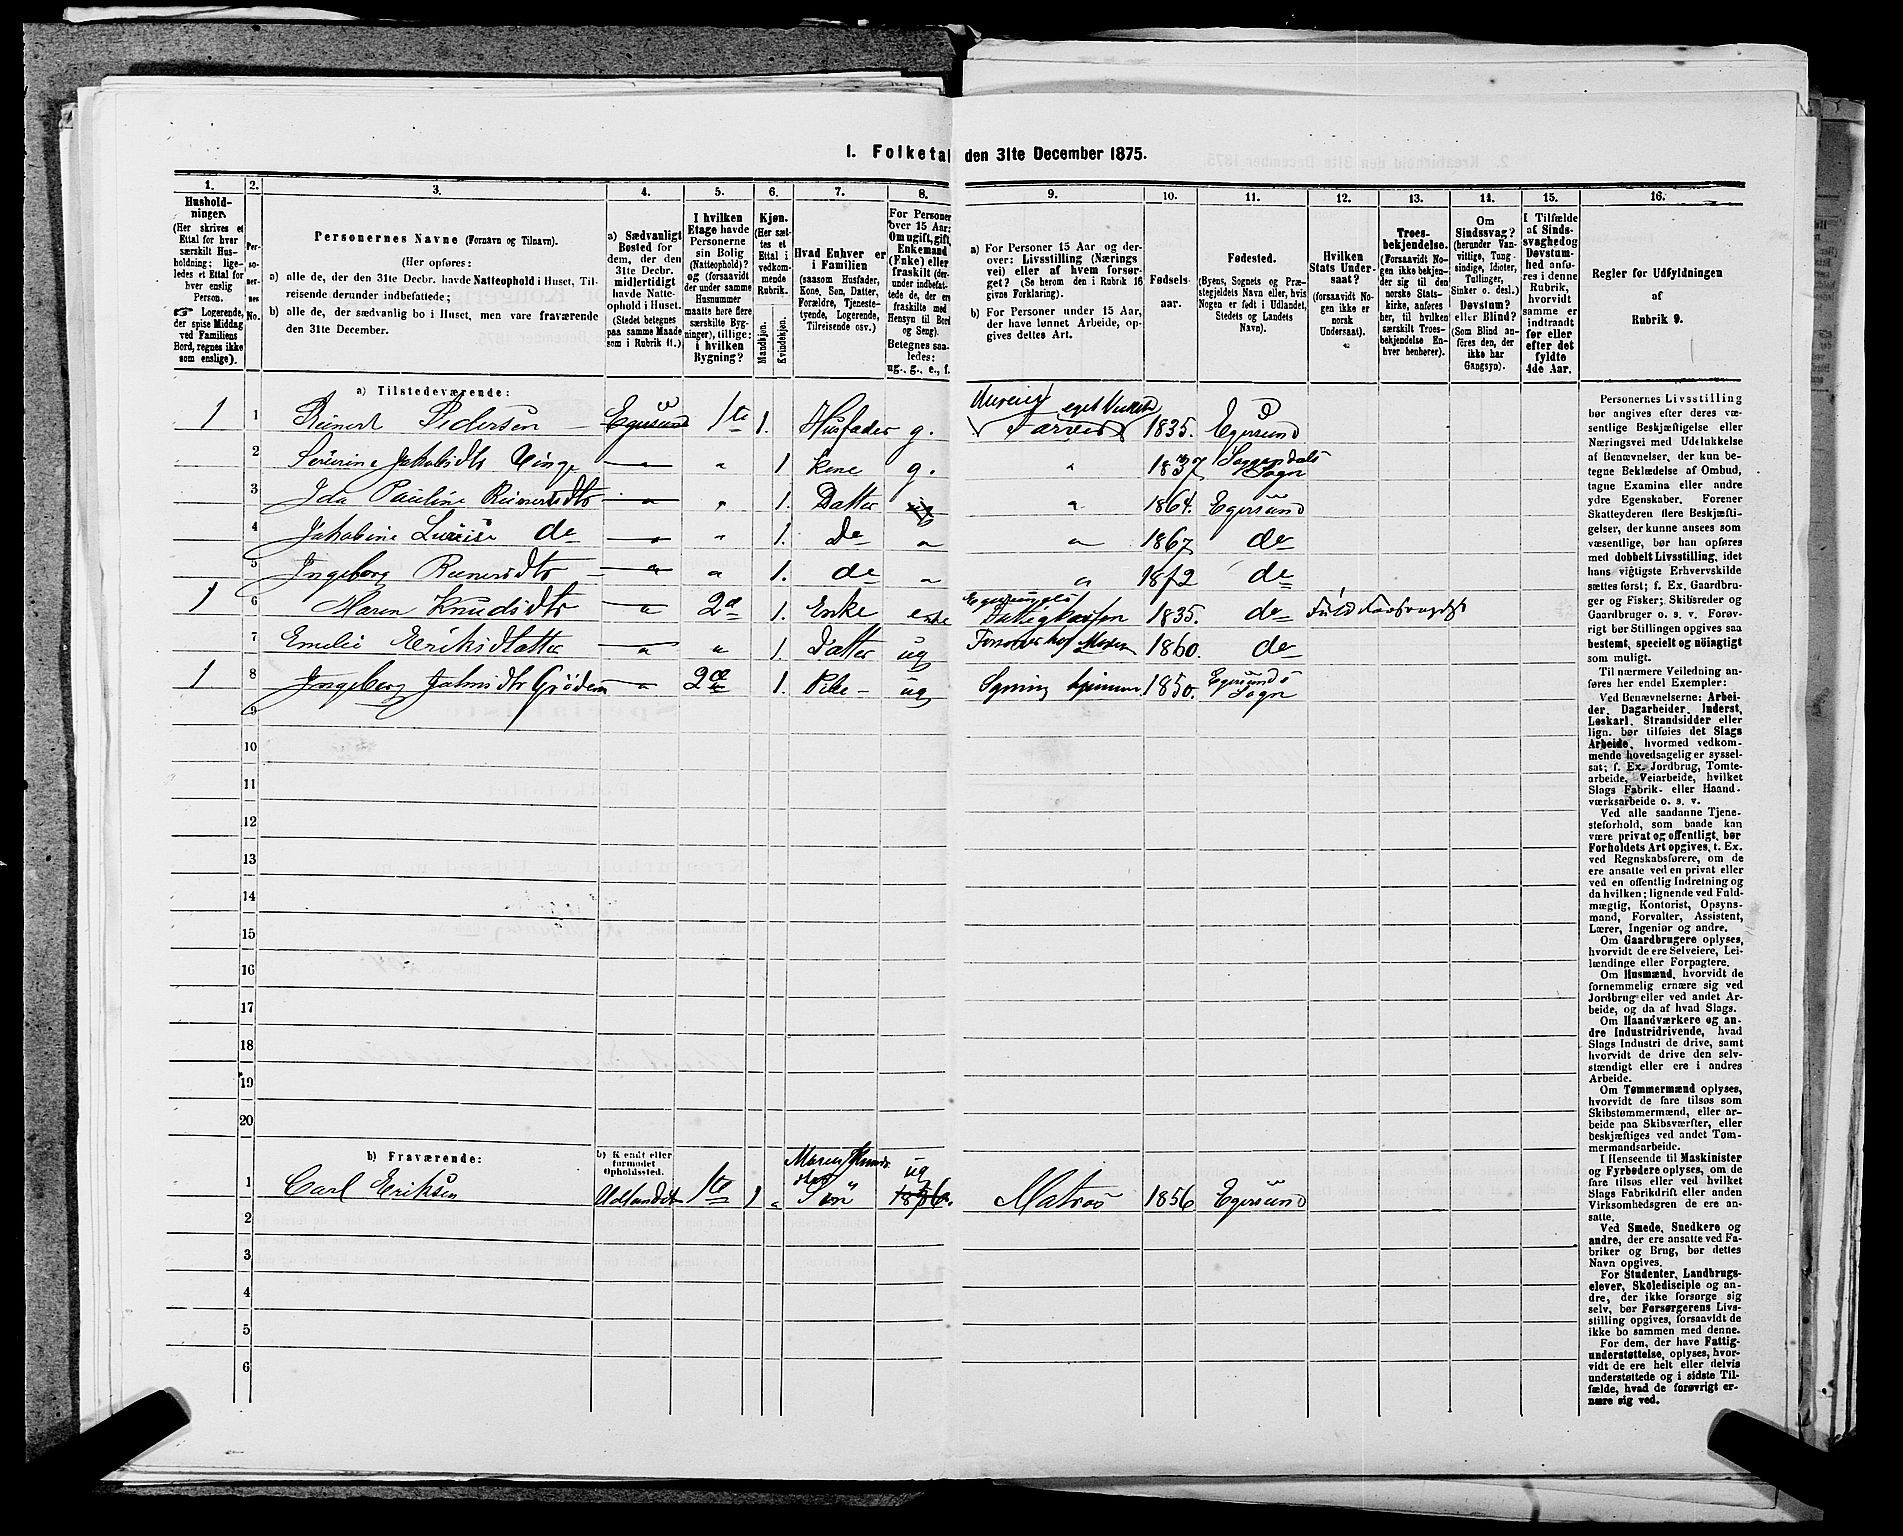 1. Folketal den 31te December 1875.
1. 2. 3. 4. 5. 6. 7. 8. 9. 10. 11. 12. 13. 14. 15. 16.
Hushold-
ninger.
(Her skrives et
Ettal for hver
særskilt Hus-
holdning; lige-
ledes et Ettal for
hver enslig
Person.
☞ Logerende,
der spise Middag
ved Familiens
Bord, regnes ikke
som enslige).
Per-
so-
ner-
nes
No.
Personernes Navne (Fornavn og Tilnavn).
(Her opføres:
a) alle de, der den 31te Decbr. havde Natteophold i Huset, Til-
reisende derunder indbefattede;
b) alle de, der sædvanlig bo i Huset, men vare fraværende
den 31te December.
a) Sædvanligt
Bosted for
dem, der den
31te Decbr.
midlertidigt
havde Natte-
ophold i Huset.
(Stedet betegnes
paa samme Maade
som i Rubrik 11.)
I hvilken
Etage havde
Personerne
sin Bolig
(Natteophold)?
og (forsaavidt
der under samme
Husnummer
maatte høre flere
særskilte Byg-
ninger), tillige:
i hvilken
Bygning?
Kjøn.
(Her sæt-
tes et
Ettal i
vedkom-
mende
Rubrik.
Mandkjøn.
Kvindekjøn.
Hvad Enhver er
i Familien
(saasom Husfader,
Kone, Søn, Datter,
Forældre, Tjeneste-
tyende, Logerende,
Tilreisende osv.)
For Personer
over 15 Aar:
Om ugift, gift,
Enkemand
(Enke) eller
fraskilt (der-
under indbefat-
tede de, der ere
fraskilte med
Hensyn til Bord
og Seng).
Betegnes saa-
ledes:
ug., g., e., f.
a) For Personer 15 Aar og der-
over: Livsstilling (Nærings-
vei) eller af hvem forsør-
get? (Se herom den i Rubrik 16
givne Forklaring).
b) For Personer under 15 Aar,
der have lønnet Arbeide, op-
gives dettes Art.
Fødsels-
aar.
Fødested.
(Byens, Sognets og Præ-
stegjeldets Navn eller, hvis
Nogen er født i Udlandet,
Stedets og Landets
Navn).
Hvilken
Stats Under-
saat?
(forsaavidt No-
gen ikke er
norsk
Undersaat).
Troes-
bekjendelse.
(Forsaavidt No-
gen ikke bekjen-
der sig til den
norske Stats-
kirke, anføres
her, til hvilken
særskilt Troes-
bekjendelse En-
hver henhører).
Om
Sindssvag?
(herunder Van-
vittige, Tung-
sindige, Idioter,
Tullinger,
Sinker o. desl.)
Døvstum?
eller Blind?
(Som Blind an-
føres den, der
ikke har
Gangsyn).
I Tilfælde
af Sinds-
svaghed og
Døvstum-
hed anfø-
res i denne
Rubrik,
hvorvidt
samme er
indtraadt
før eller
efter det
fyldte
4de Aar.
Regler for Udfyldningen
af
Rubrik 9.
a) Tilstedeværende:
1 1 Reinert Pedersen — Egersund 1te 1. Husfader g. eget Verksted Farver 1835. Egersund
2 Serine Jakobsdtr — " " 1 Kone g. " 1837 Soggendals Sogn
3 Ida Pauline Reinertsdtr — " " 1. Datter ug " 1864. Egersund
4 Jakobine Luisie de — " " 1. De " " 1867 de
5 Ingeborg Reinertsdtr — " " 1. de " " 1872 de
1 6 Maren Knudsdtr — " 2d 1. Enke enke Egersunds Fattigkassen 1835. de
7 Emelie Eriksdatter — " " 1. Datter ug Moren 1860. de
1 8 Ingeborg Grødem — " 2d 1. Pike — ug Syning 1850. Egersunds Sogn
9
10
11
12
13
14
15
16
17
18
19
20
b) Fraværende:
b) Kendt eller
formodet
Opholdssted.
1 Carl Eriksen Udlandet 1te 1 " Maren Knuds dtrs Søn ug 1856. Matros 1856 Egersund
2
3
4
5
6
Personernes Livsstilling
bør angives efter deres væ-
sentlige Beskjæftigelse eller
Næringsvei med Udelukkelse
af Benævnelser, der kun be-
tegne Beklædelse af Ombud,
tagne Examina eller andre
ydre Egenskaber. Forener
Skatteyderen flere Beskjæfti-
gelser, der kunne ansees som
væsentlige, bør han opføres
med dobbelt Livsstilling, idet
hans vigtigste Erhvervskilde
sættes først; f. Ex. Gaardbru-
ger og Fisker; Skibsreder og
Gaardbruger o. s. v. Forøv-
rigt bør Stillingen opgives saa
bestemt, specielt og nøiagtigt
som muligt.
Til nærmere Veiledning an-
føres her endel Exempler:
Ved Benævnelserne: Arbei-
der, Dagarbeider, Inderst,
Løskarl, Strandsidder eller
lign. bør tilføies det Slags
Arbeide, hvormed vedkom-
mende hovedsagelig er syssel-
sat; f. Ex. Jordbrug, Tomte-
arbeide, Veiarbeide, hvilket
Slags Fabrik- eller Haand-
værksarbeide o. s. v.
Ved alle saadanne Tjene-
steforhold, som baade kan
være privat og offentligt, bør
Forholdets Art opgives, t. Ex.
ved Regnskabsførere, om de
ere ansatte ved en privat eller
ved en offentlig Indretning og
da hvilken; lignende ved Fuld-
mægtig, Kontorist, Opsyns-
mand, Forvalter, Assistent,
Lærer, Ingeniør og andre.
Om Gaardbrugere oplyses,
hvorvidt de ere Selveiere, Lei-
lændinge eller Forpagtere.
Om Husmænd, hvorvidt de
fornemmelig ernære sig ved
Jordbrug eller ved andet Ar-
beide, og da af hvad Slags.
Om Haandværkere og an-
dre Industridrivende, hvad
Slags Industri de drive, samt
hvorvidt de drive den selv-
stændigt eller ere i andres
Arbeide.
Om Tømmermænd oplyses,
hvorvidt de fare tilsøs som
Skibstømmermænd, eller ar-
beide paa Skibsværfter, eller
beskjæftiges ved andet Tøm-
mermandsarbeide.
I Henseende til Maskinister
og Fyrbødere oplyses, om de
fare tilsøs eller ved hvilket
Slags Fabrikdrift eller anden
Virksomhedsgren de ere an-
satte.
Ved Smede, Snedkere og
andre, der ere ansatte ved Fa-
briker og Brug, bør dettes
Navn opgives.
For Studenter, Landbrugs-
elever, Skoledisciple og an-
dre, der ikke forsørge sig
selv, bør Forsørgerens Livs-
stilling opgives, forsaavidt de
ikke bo sammen med denne.
For dem, der have Fattig-
understøttelse, oplyses, hvor-
vidt de ere helt eller delvis
understøttede og i sidste Til-
fælde, hvad de forøvrigt er-
nære sig ved.